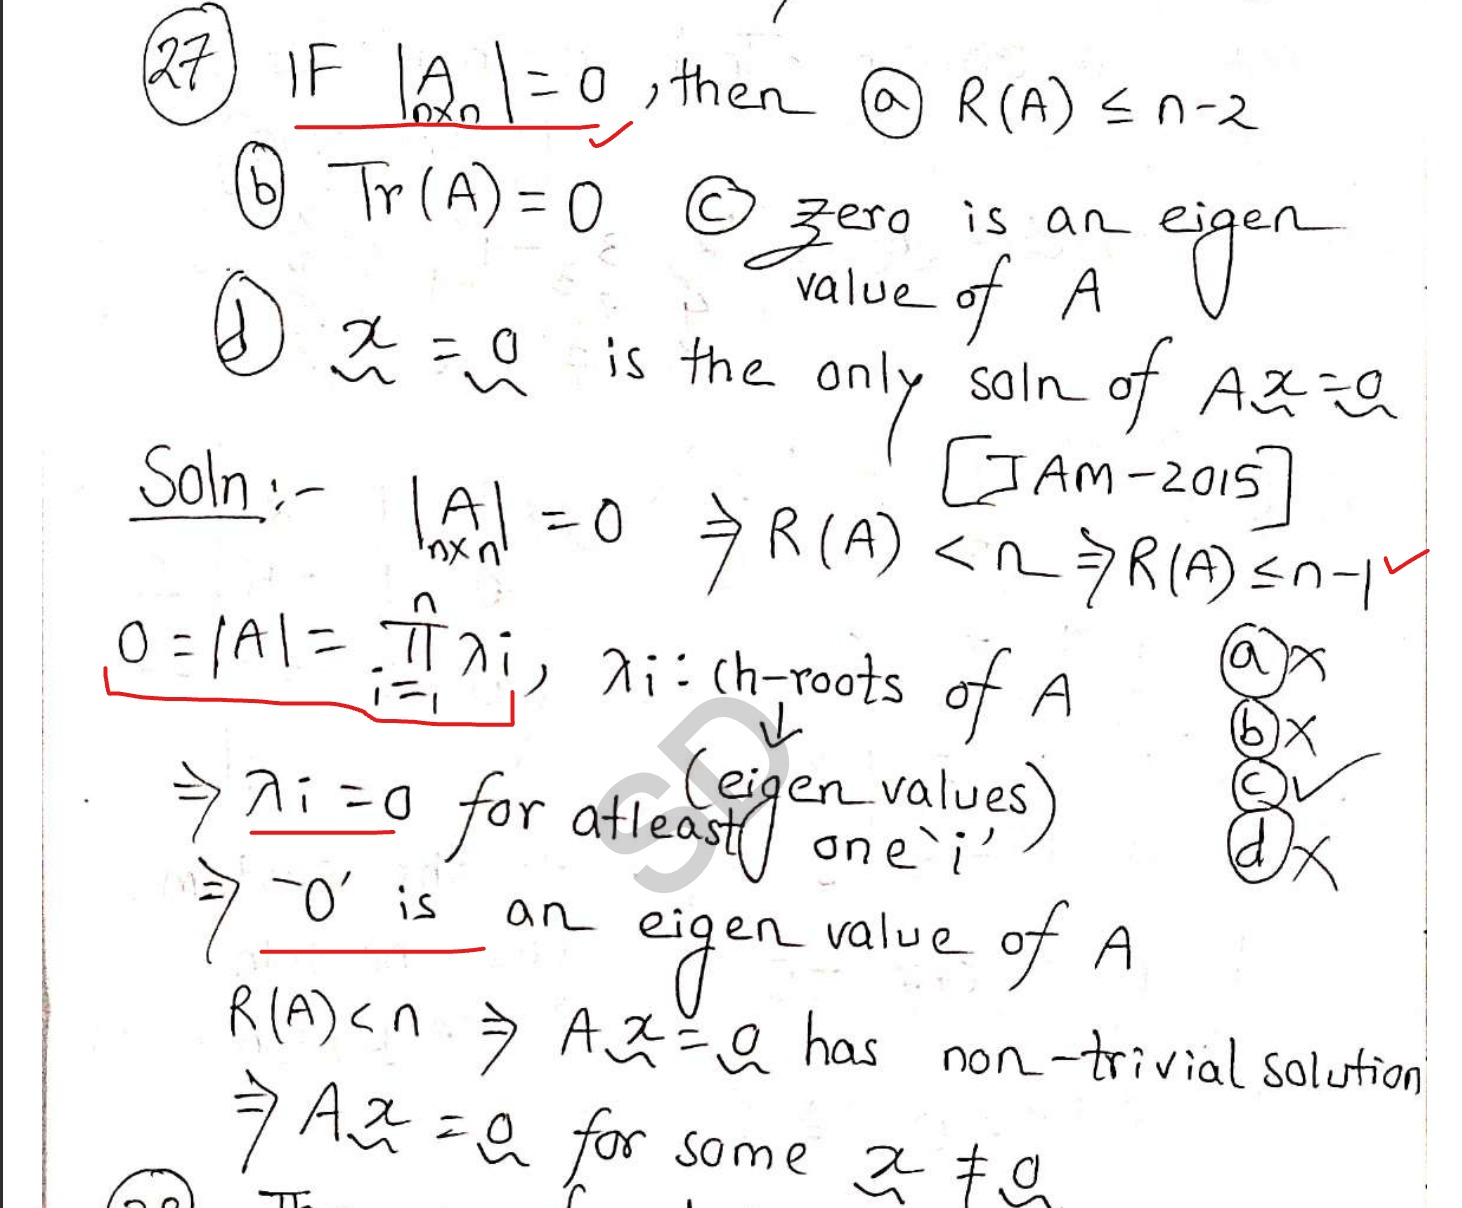 27 IF |A n×n| = 0, then (a) R(A) ≤ n-2
(b) Tr(A) = 0 (c) zero is an eigen
value of A
(d) x = 0 is the only soln of Ax = 0
[JAM-2015]
Soln:- |A n×n| = 0 ⇒ R(A) < n ⇒ R(A) ≤ n-1
0 = |A| = n π i=1 λi, λi : ch-roots of A
(eigen values)
⇒ λi = 0 for atleast one 'i'
⇒ '0' is an eigen value of A
R(A) < n ⇒ Ax = 0 has non-trivial solution
⇒ Ax = 0 for some x ≠ 0
(a) ×
(b) ×
(c) ✓
(d) ×
SD